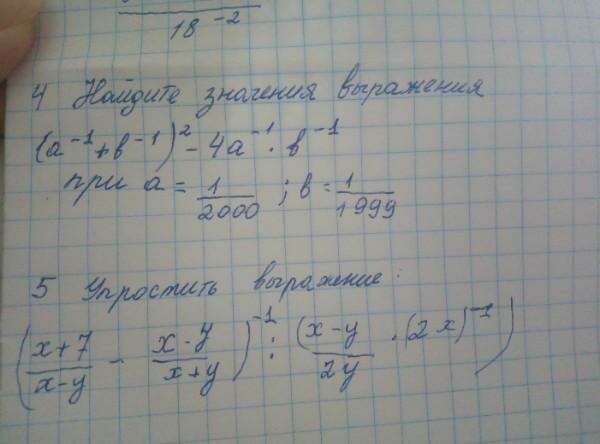 18⁻²
4 Найдите значения выражения
(a⁻¹+b⁻¹)² - 4a⁻¹ · b⁻¹
при a = 1/2000 ; b = 1/1999
5 Упростить выражение:
((x+7)/(x-y) - (x-y)/(x+y))⁻¹ : ((x-y)/2y · (2x)⁻¹)